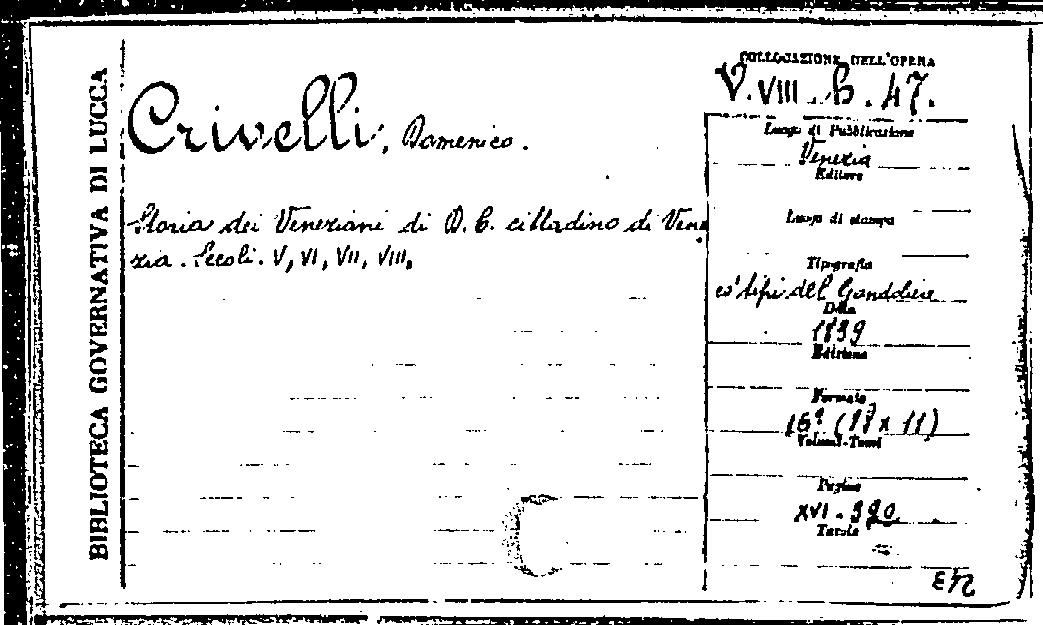 BIBLIOTECA GOVERNATIVA DI LUCCA
Crivelli, Domenico.
Storia dei Veneziani di D. C. cittadino di Vene
zia. Secoli. V, VI, VII, VIII,
COLLOCAZIONE DELL'OPERA
V. VIII. b. 47.
Luogo di Pubblicazione
Venezia
Editore
Luogo di stampa
Tipografia
co' tipi del Gondoliere
Data
1839
Edizione
Formato
16º (17 x 11)
Volumi-Tomi
Pagine
XVI - 390
Tavole